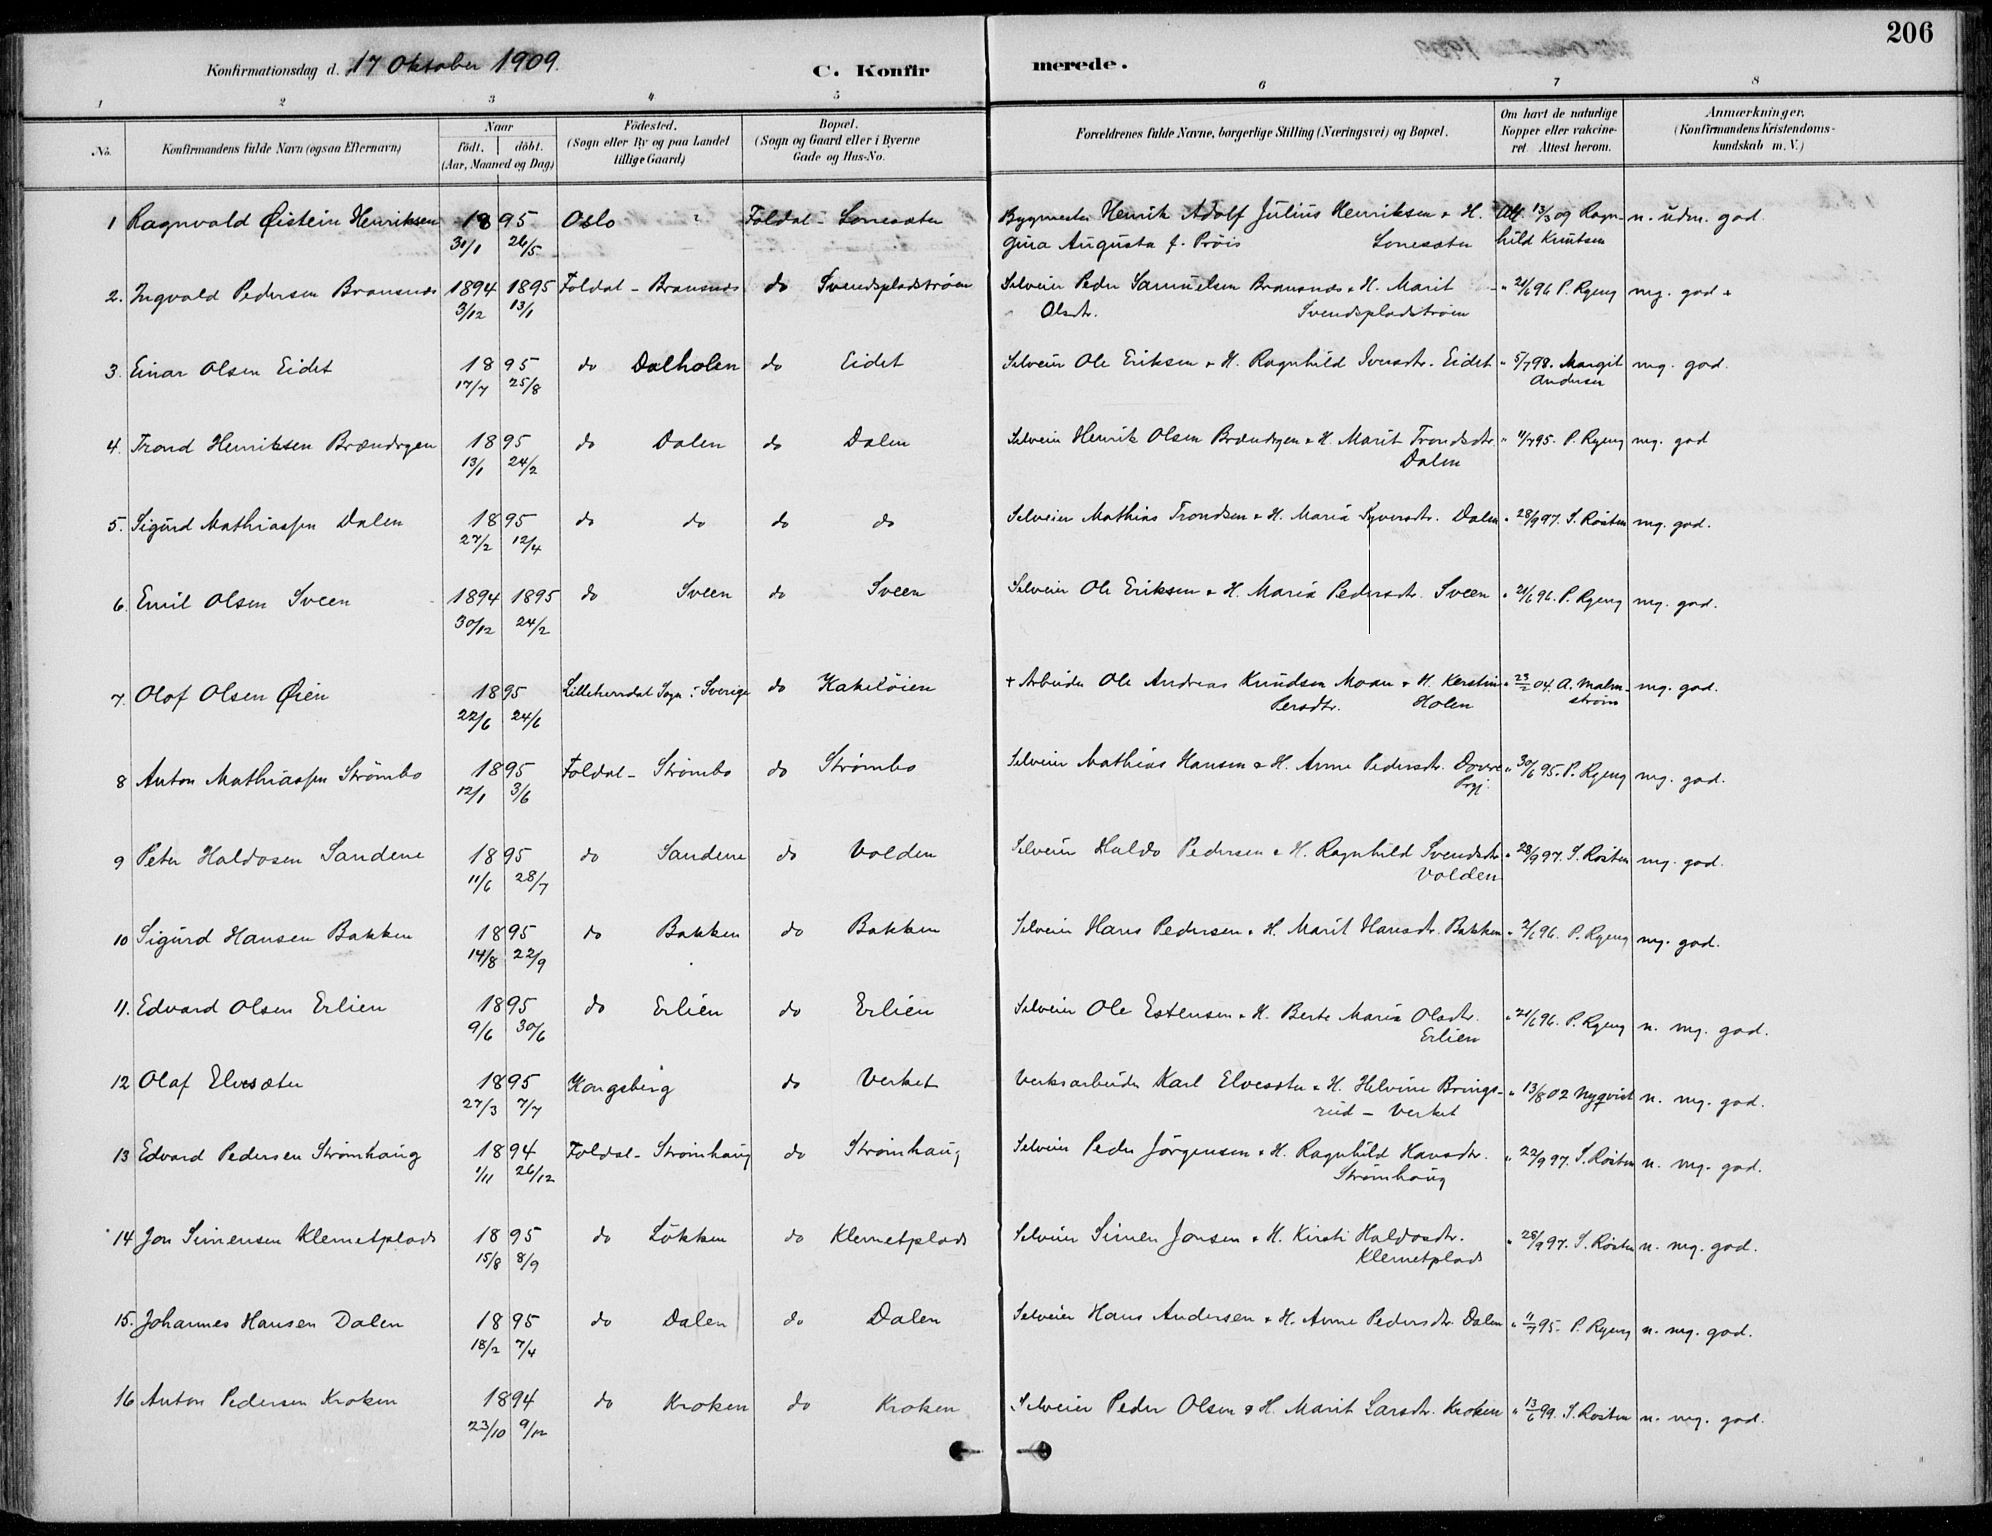 206
Konfirmationsdag d. 17 Oktober 1909.
C. Konfirmerede.
1 2 3 4 5 6 7 8
No. Konfirmandens fulde Navn (ogsaa Efternavn) Naar født. døbt. (Aar, Maaned og Dag) Födested. (Sogn eller By og paa Landet tillige Gaard) Bopæl. (Sogn og Gaard eller i Byerne Gade og Hus-No. Forældrenes fulde Navne, borgerlige Stilling (Næringsvei) og Bopæl. Om havt de naturlige Kopper eller vakcineret. Attest herom. Anmærkninger. (Konfirmandens Kristendomskundskab m. V.)
1 Ragnvald Øistein Henriksen 1895 Oslo Foldal - Lonesæter Bygmester Henrik Adolf Julius Henriksen & H. Att. 13/3 09 Ragn- n. udm. god.
30/1 26/5 Gina Augusta f. Pröis Lonesæter hild Knutsen
2. Ingvald Pedersen Bransnes 1894 1895 Foldal - Bransnes do Svendspladstrøen Selveier Peder Samuelsen Bransnes & H. Marit " 21/6 96 P. Ryeng mg. god +
3/12 13/1 Olsdtr. Svendspladstrøen
3. Einar Olsen Eidet 1895 do Dalholen do Eidet Selveier Ole Eriksen & H. Ragnhild Iversdtr. Eidet " 5/7 98. Margit mg. god.
17/7 25/8 Andersen
4. Trond Henriksen Brændvgen 1895 do Dalen do Dalen Selveier Henrik Olsen Brændvgen & H. Marit Trondsdtr. " 11/7 95. P. Ryeng mg. god
13/1 24/2 Dalen
5. Sigurd Mathiassen Dalen 1895 do do do do Selveier Mathias Trondsen & H. Maria Syversdtr. Dalen " 28/9 97. S. Rosten mg. god.
27/2 12/4
6. Emil Olsen Sveen 1894 1895 do Sveen do Sveen Selveier Ole Eriksen & H. Maria Pedersdtr. Sveen " 21/6 96. P. Ryeng mg. god.
30/12 24/2
7. Olof Olsen Øien 1895 Lilleherrdal Sogn i Sverige do Kakeløien + Arbeider Ole Andreas Knudsen Moan & H. Kerstin " 23/2 04. A. Malm- mg. god.
22/6 24/6 Persdtr. Holen strøm
8 Anton Mathiassen Strömbo 1895 Foldal - Strömbo do Strömbo Selveier Mathias Hansen & H. Anne Pedersdtr. Dovre " 30/6 95. P. Ryeng mg. god.
12/1 3/6 Prgj.
9 Peter Haldosen Sandene 1895 do Sandene do Volden Selveier Haldo Pedersen & H. Ragnhild Svendsdtr. " 28/9 97. S. Rosten mg. god.
11/6 28/7 Volden
10 Sigurd Hansen Bakken 1895 do Bakken do Bakken Selveier Hans Pedersen & H. Marit Hansdtr. Bakken " 2/6 96. P. Ryeng mg. god.
14/8 22/9
11. Edvard Olsen Erlien 1895 do Erlien do Erlien Selveier Ole Estensen & H. Berte Maria Olsdtr. " 21/6 96. P. Ryeng n. mg. god.
9/6 30/6 Erlien
12 Olaf Elvesæter 1895 Kongsberg do Verket Verksarbeider Karl Elvesæter & H. Helvine Brings- " 13/8 02 Nyqvist n. mg. god.
27/3 7/7 rud - Verket
13 Edvard Pedersen Strömhaug 1894 Foldal - Strömhaug do Strömhaug Selveier Peder Jörgensen & H. Ragnhild Hansdtr. " 22/9 97. S. Rosten n. mg. god.
1/11 26/12 Strömhaug
14 Jon Simensen Klemetplads 1895 do Lökken do Klemetplads Selveier Simen Jonsen & H. Kirsti Haldosdtr. " 28/9 97. S. Rosten n. mg. god.
15/8 8/9 Klemetplads
15. Johannes Hansen Dalen 1895 do Dalen do Dalen Selveier Hans Andersen & H. Anne Pedersdtr. Dalen " 11/7 95. P. Ryeng n. mg. god.
18/2 7/4
16 Anton Pedersen Kroken 1894 do Kroken do Kroken Selveier Peder Olsen & H. Marit Larsdtr. Kroken " 13/6 99. S. Rosten n. mg. god.
23/10 9/12